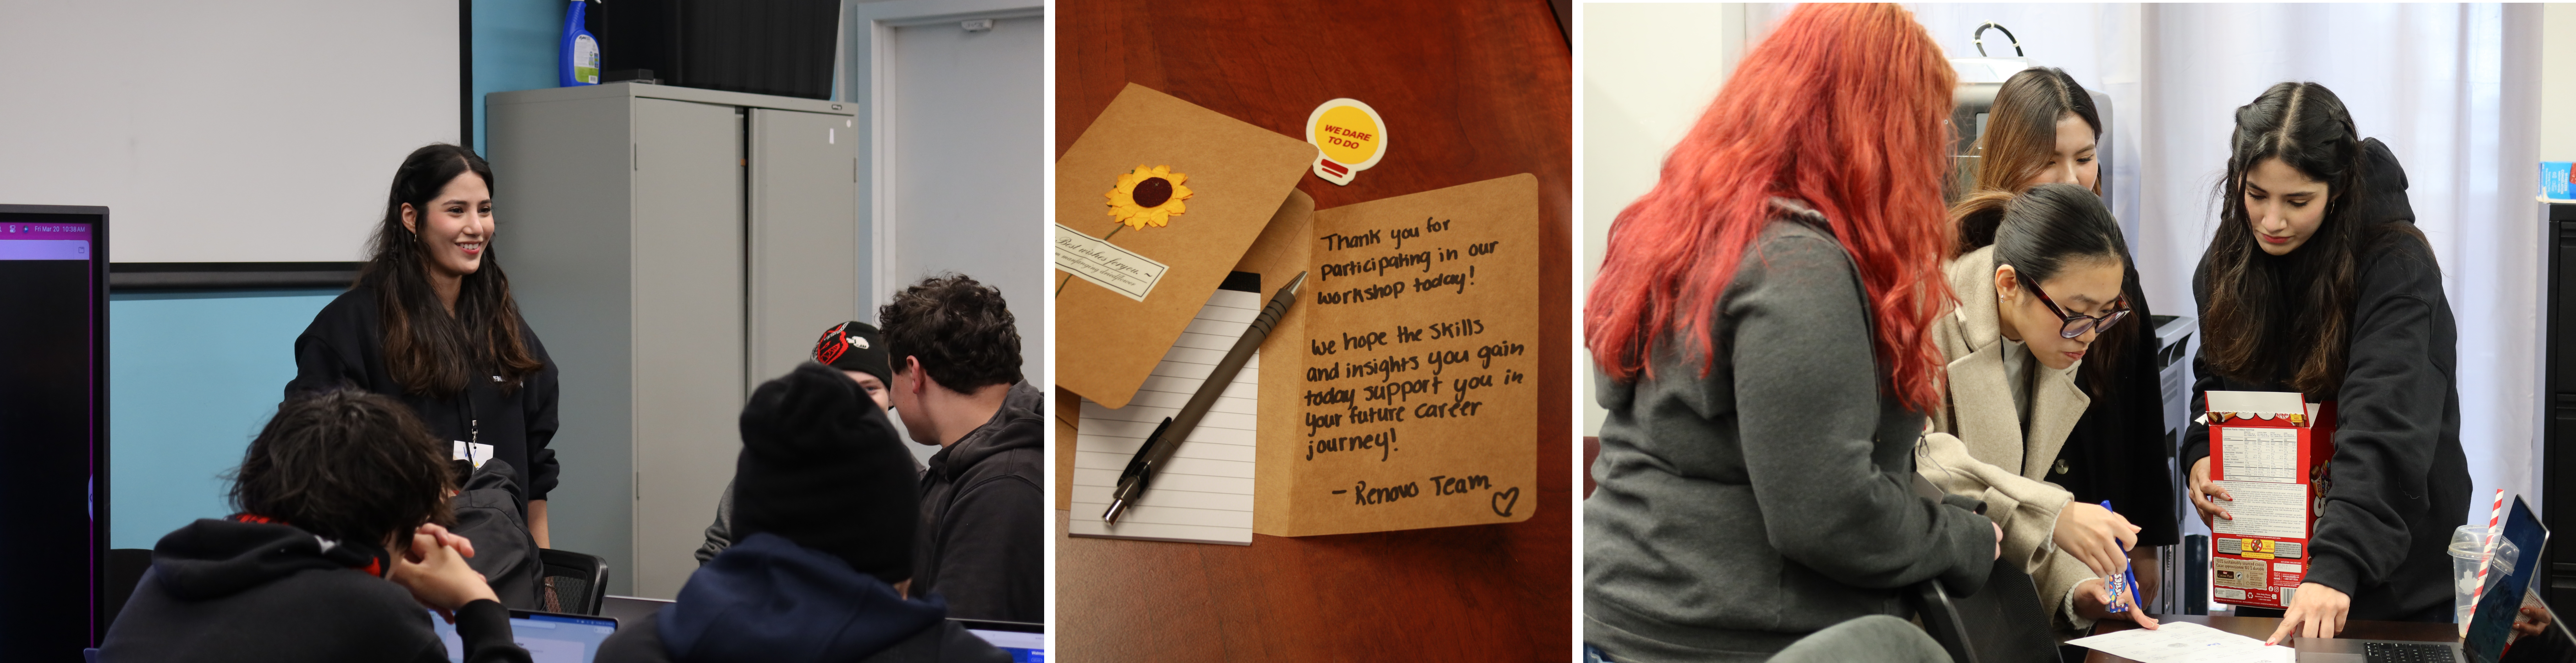 Fri Mar 20 10:38 AM
WE DARE
TO DO
Best wishes for you. ~
Thank you for
participating in our
workshop today!
We hope the skills
and insights you gain
today support you in
your future career
journey!
- Renovo Team